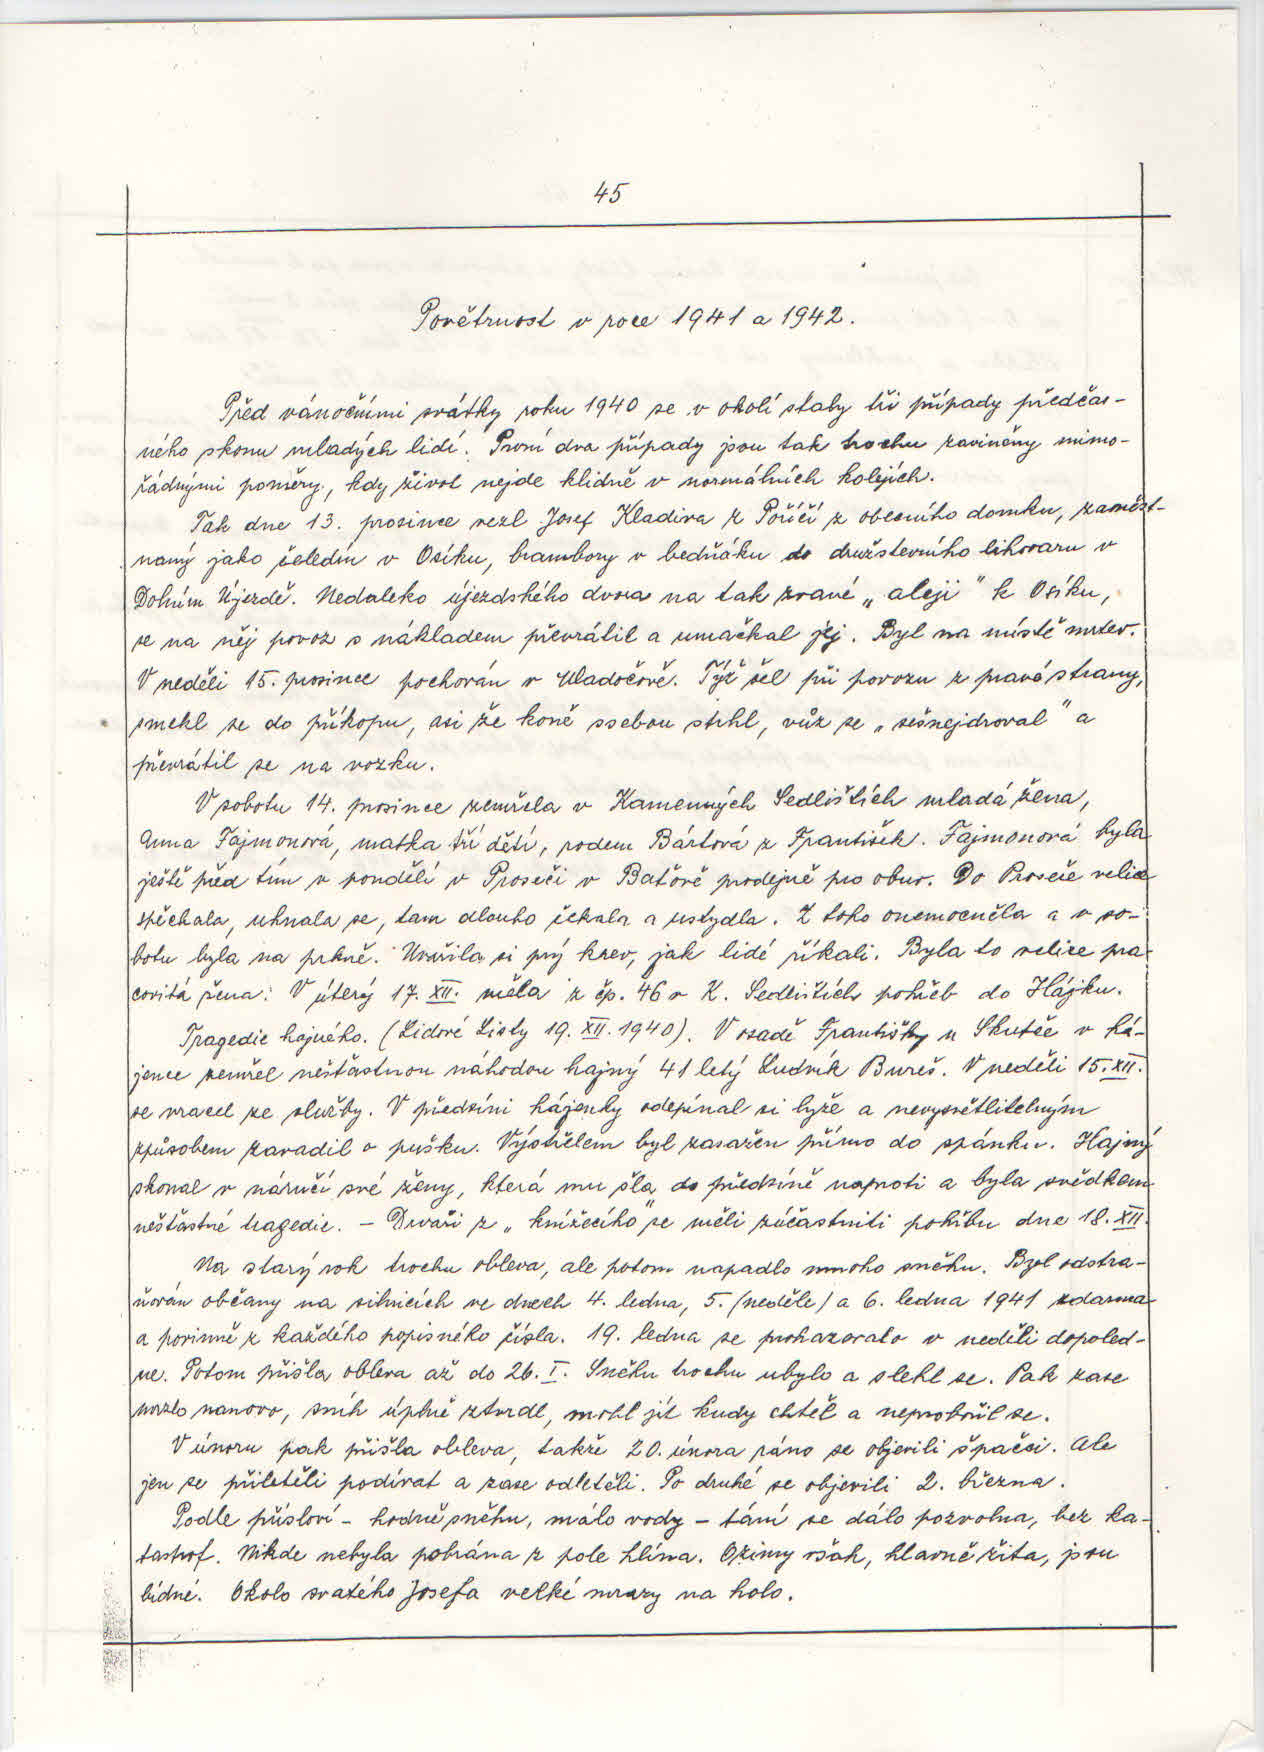 45
Povětrnost v roce 1941 a 1942.
Před vánočními svátky roku 1940 se v okolí staly tři případy předčas-
ného skonu mladých lidí. První dva případy jsou tak trochu zaviněny mimo-
řádnými poměry, kdy život nejde klidně v normálních kolejích.
Tak dne 13. prosince vezl Josef Kladiva z Poříčí z obecního domku, zaměst-
naný jako čeledín v Osíku, brambory v bedňáku do družstevního lihovaru v
Dolním Újezdě. Nedaleko újezdského dvora na tak zvané „aleji" k Osíku,
se na něj povoz s nákladem převrátil a umačkal jej. Byl na místě mrtev.
V neděli 15. prosince pochován v Mladočově. Týž šel při povozu z pravé strany,
smekl se do příkopu, asi že koně ssebou strhl, vůz se „sešnejdroval" a
převrátil se na vozku.
V sobotu 14. prosince zemřela v Kamenných Sedlištích mladá žena,
Anna Fajmonová, matka tří dětí, rodem Bártová z František. Fajmonová byla
ještě před tím v pondělí v Proseči v Baťově prodejně pro obuv. Do Proseče velice
spěchala, uhnala se, tam dlouho čekala a ustydla. Z toho onemocněla a v so-
botu byla na prkně. Uvařila si prý krev, jak lidé říkali. Byla to velice pra-
covitá žena. V úterý 17. XII. měla z čp. 46 v K. Sedlištích pohřeb do Hájku.
Tragedie hajného. (Lidové Listy 19. XII. 1940). V osadě Františky u Skutče v há-
jence zemřel nešťastnou náhodou hajný 41 letý Ludvík Bureš. V neděli 15. XII.
se vracel ze služby. V předsíni hájenky odepínal si lyže a nevysvětlitelným
způsobem zavadil o pušku. Výstřelem byl zasažen přímo do spánku. Hajný
skonal v náručí své ženy, která mu šla do předsíně naproti a byla svědkem
nešťastné tragedie. – Drvaři z „knížecího" se měli zúčastniti pohřbu dne 18. XII.
Na starý rok trochu obleva, ale potom napadlo mnoho sněhu. Byl odstra-
ňován občany na silnicích ve dnech 4. ledna, 5. (neděle) a 6. ledna 1941 zdarma
a povinně z každého popisného čísla. 19. ledna se prohazovalo v neděli dopoled-
ne. Potom přišla obleva až do 26. I. Sněhu trochu ubylo a slehl se. Pak zase
mrzlo nanovo, sníh úplně ztvrdl, mohl jít kudy chtěl a neprobořil se.
V únoru pak přišla obleva, takže 20. února ráno se objevili špačci. Ale
jen se přiletěli podívat a zase odletěli. Po druhé se objevili 2. března.
Podle přísloví – hodně sněhu, málo vody – tání se dálo pozvolna, bez ka-
tastrof. Nikde nebyla pobrána z pole hlína. Ozimy však, hlavně žita, jsou
bídné. Okolo svatého Josefa velké mrazy na holo.